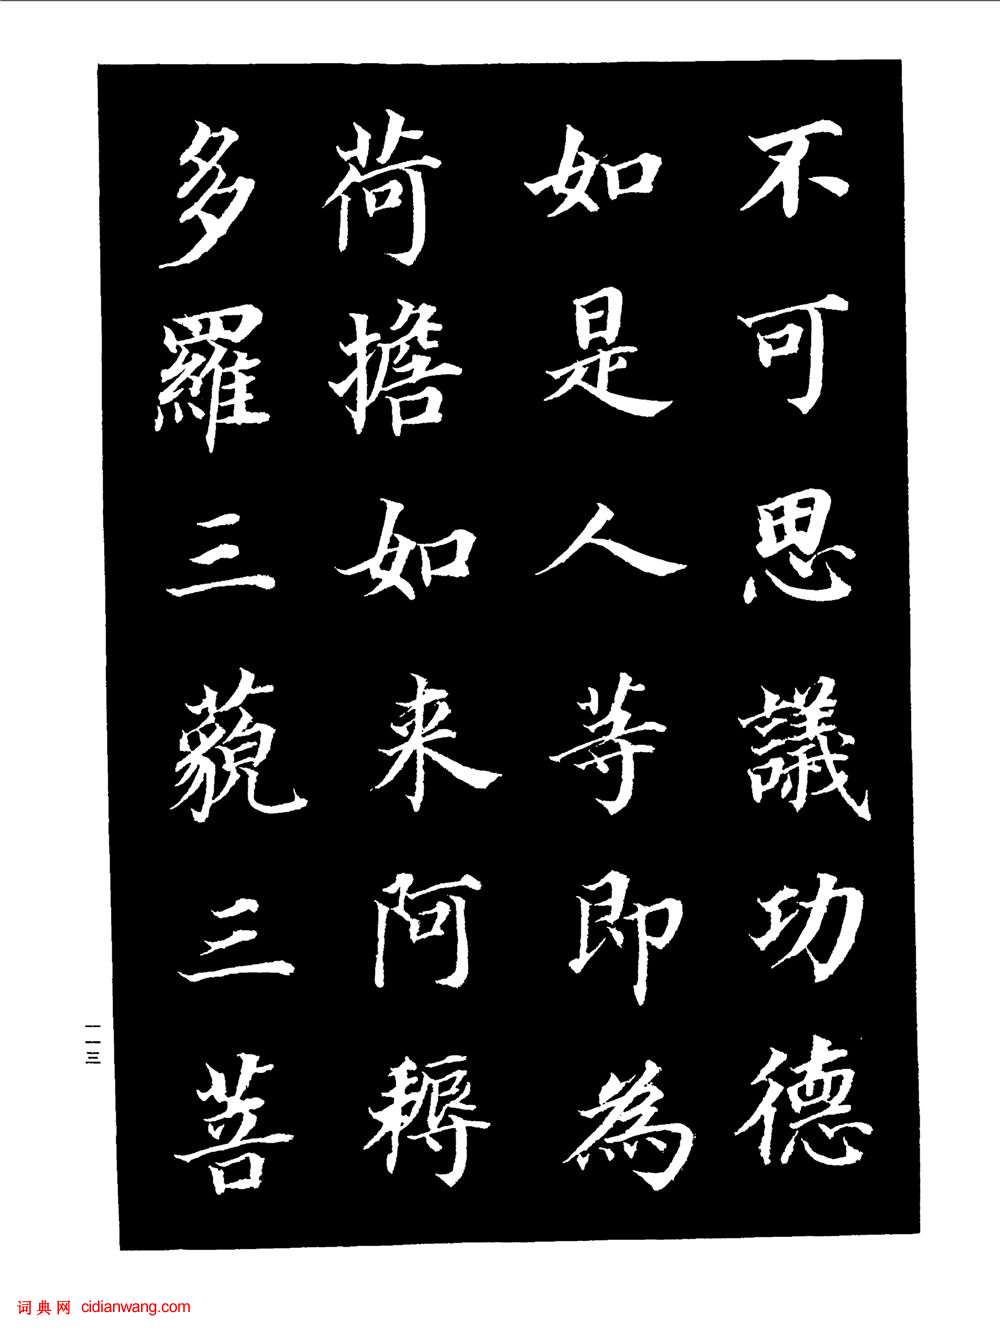 不可思議功德
如是人等即為
荷擔如来阿耨
多羅三藐三菩
一一三
词典网 cidianwang.com